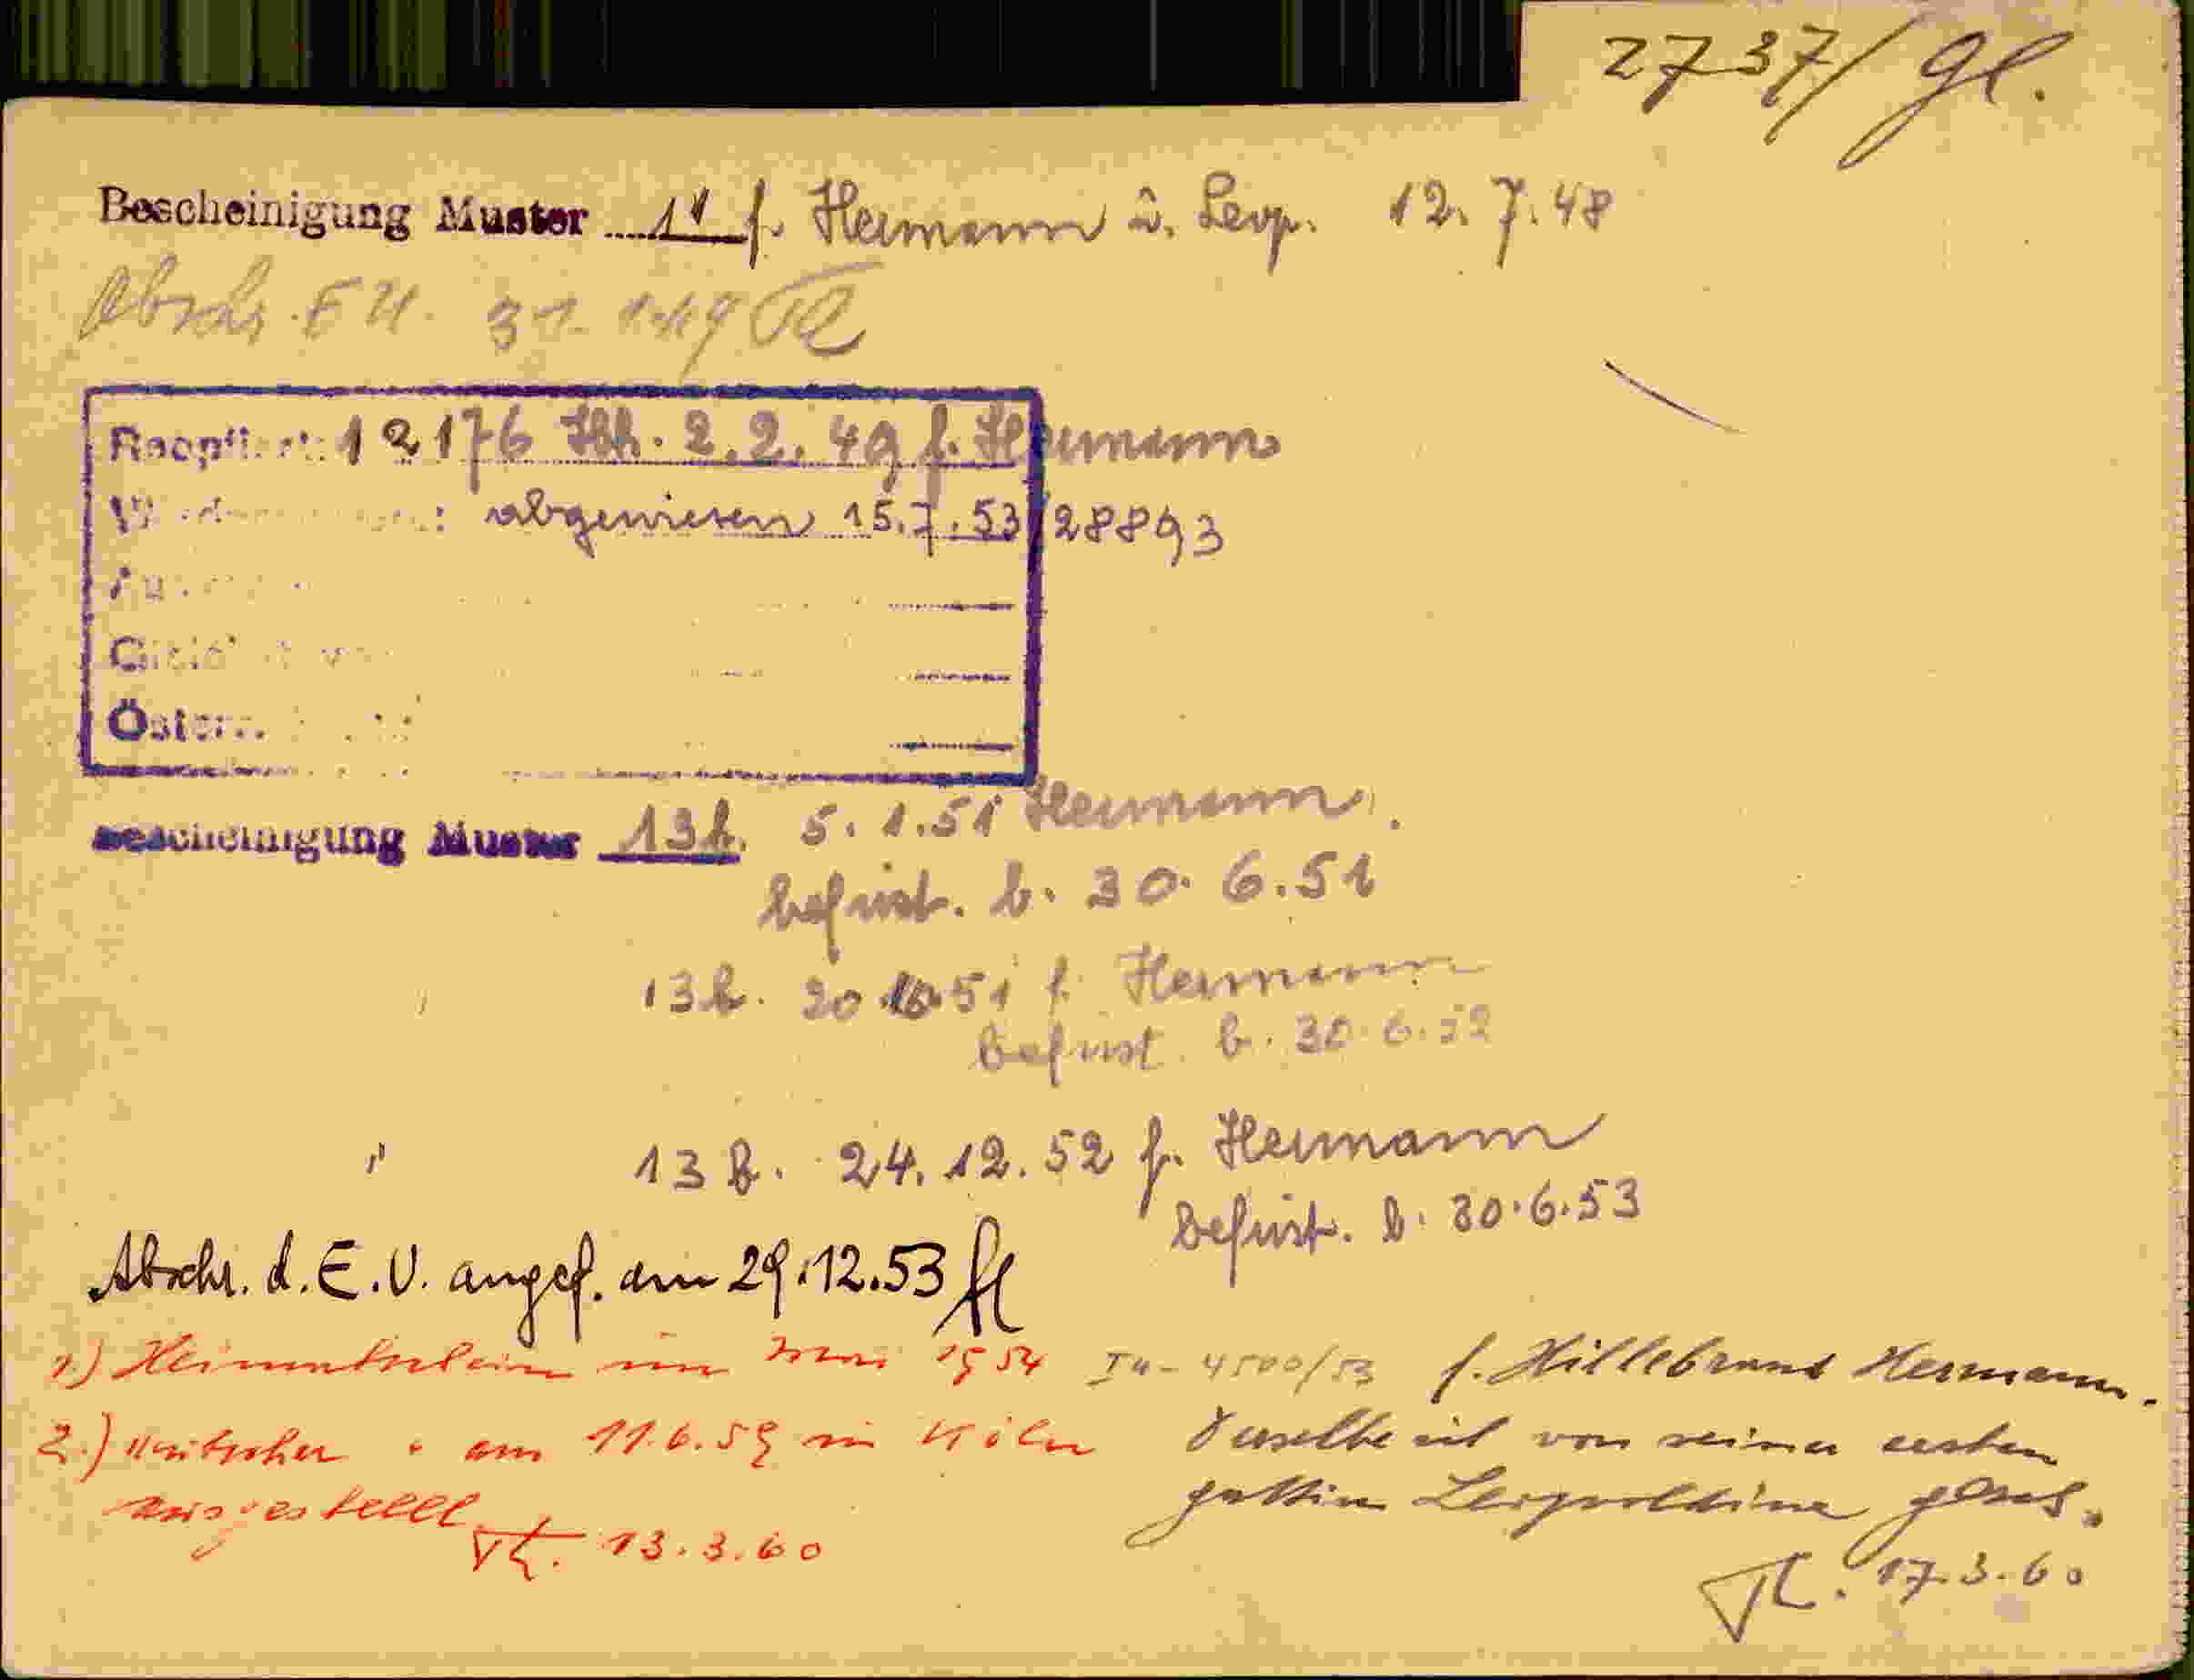 2737/ gl.
Bescheinigung Muster 11 f. Hermann u. Leop. 12.7.48
Abschr. E.U. 31.1.49
12176 2.2.49 f. Hermann
: abgewiesen 15.7.53/28893
Österr.
Bescheinigung Muster 13b. 5.1.51 Hermann.
befrist. b. 30.6.51
13b. 20. 51 f. Hermann
befrist. b. 30.6.52
" 13b. 24.12.52 f. Hermann
befrist. b. 30.6.53
Abschr. d. E.V. angef. am 29.12.53
1.) Heimatschein im Mai 1954 4500/53 f. Hillebrand Hermann.
2.) " am 11.6.59 in Köln Derselbe ist von seiner ersten
ausgestellt 13.3.60 gattin Leopoldine gesch.
17.3.60